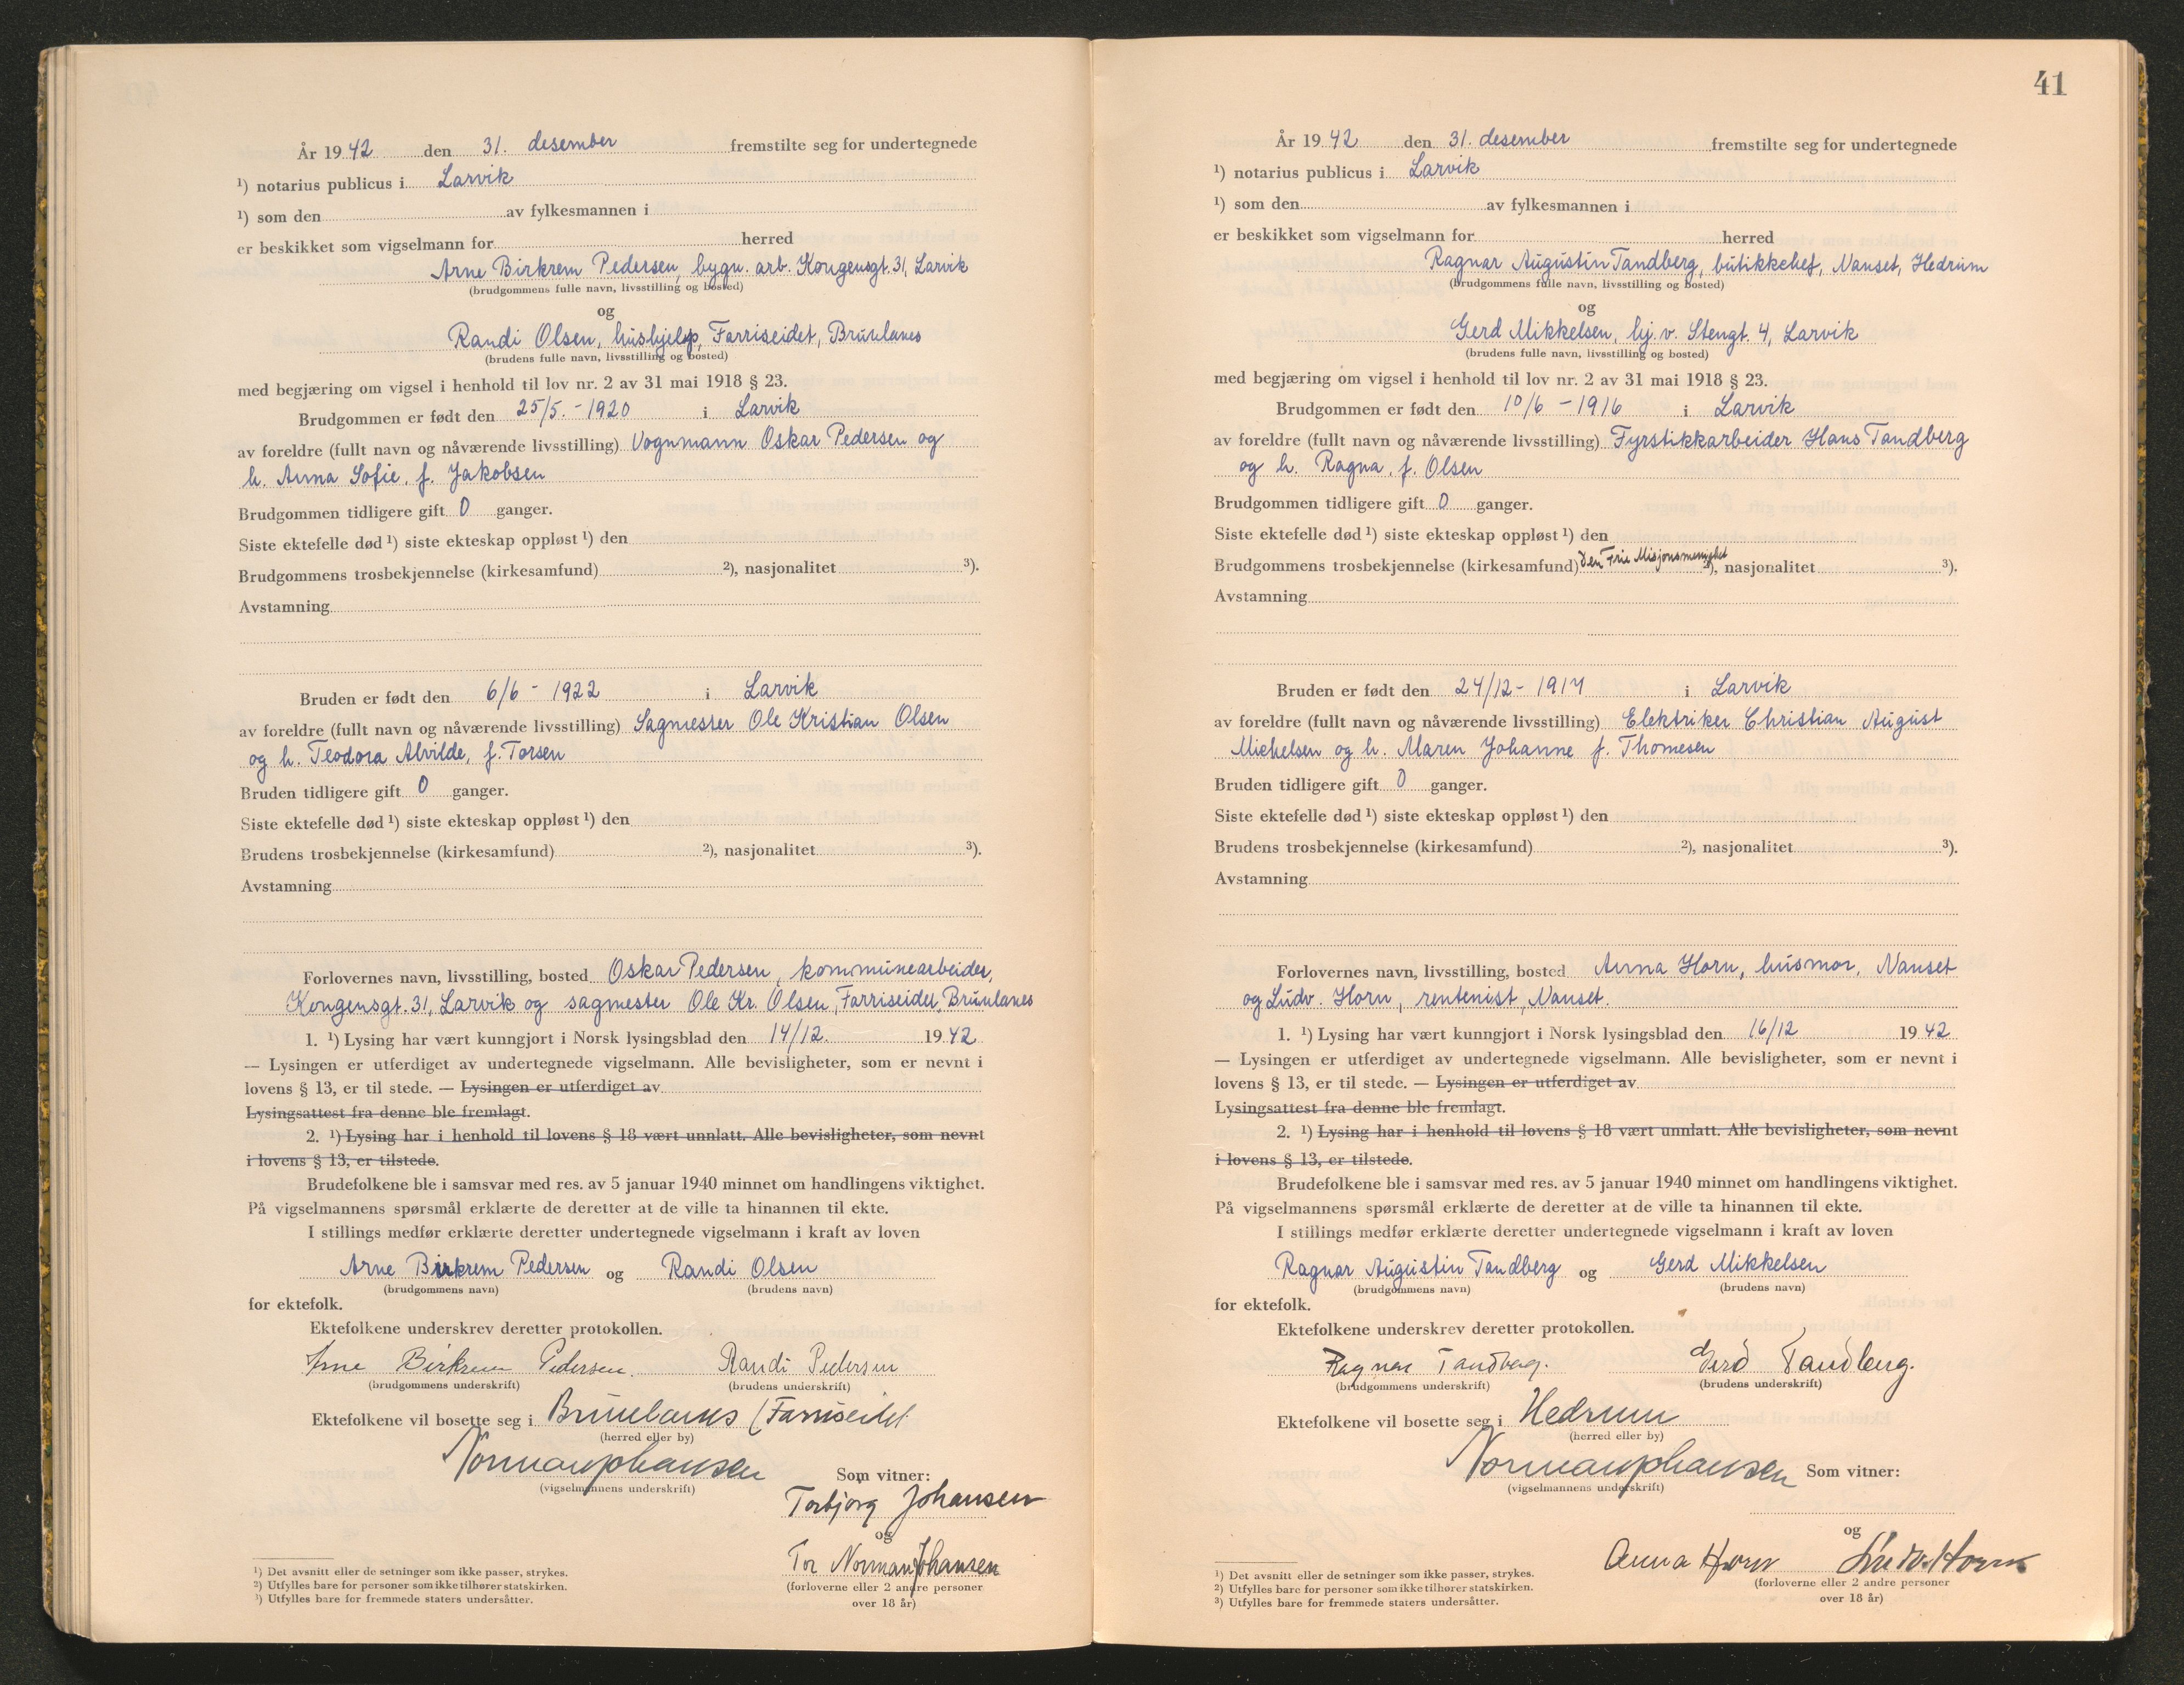 År 1942 den 31. desember fremstilte seg for undertegnede
¹) notarius publicus i Larvik
¹) som den av fylkesmannen i
er beskikket som vigselmann for herred
Arne Birkrem Pedersen, bygn. arb. Kongensgt. 31, Larvik
(brudgommens fulle navn, livsstilling og bosted)
og
Randi Olsen, hushjelp, Farriseidet, Brunlanes
(brudens fulle navn, livsstilling og bosted)
med begjæring om vigsel i henhold til lov nr. 2 av 31 mai 1918 § 23.
Brudgommen er født den 25/5. - 1920 i Larvik
av foreldre (fullt navn og nåværende livsstilling) Vognmann Oskar Pedersen og
h. Anna Sofie, f. Jakobsen
Brudgommen tidligere gift 0 ganger.
Siste ektefelle død ¹) siste ekteskap oppløst ¹) den
Brudgommens trosbekjennelse (kirkesamfund) ²), nasjonalitet ³).
Avstamning
Bruden er født den 6/6 - 1922 i Larvik
av foreldre (fullt navn og nåværende livsstilling) Sagmester Ole Kristian Olsen
og h. Teodora Alvilde, f. Torsen
Bruden tidligere gift 0 ganger.
Siste ektefelle død ¹) siste ekteskap oppløst ¹) den
Brudens trosbekjennelse (kirkesamfund) ²), nasjonalitet ³).
Avstamning
Forlovernes navn, livsstilling, bosted Oskar Pedersen, kommunearbeider,
Kongensgt. 31, Larvik og sagmester Ole Kr. Olsen, Farriseidet, Brunlanes
1. ¹) Lysing har vært kunngjort i Norsk lysingsblad den 14/12. 1942
— Lysingen er utferdiget av undertegnede vigselmann. Alle bevisligheter, som er nevnt i
lovens § 13, er til stede. — Lysingen er utferdiget av
Lysingsattest fra denne ble fremlagt.
2. ¹) Lysing har i henhold til lovens § 18 vært unnlatt. Alle bevisligheter, som nevnt
i lovens § 13, er tilstede.
Brudefolkene ble i samsvar med res. av 5 januar 1940 minnet om handlingens viktighet.
På vigselmannens spørsmål erklærte de deretter at de ville ta hinannen til ekte.
I stillings medfør erklærte deretter undertegnede vigselmann i kraft av loven
Arne Birkrem Pedersen og Randi Olsen
(brudgommens navn) (brudens navn)
for ektefolk.
Ektefolkene underskrev deretter protokollen.
Arne Birkrem Pedersen. Randi Pedersen
(brudgommens underskrift) (brudens underskrift)
Ektefolkene vil bosette seg i Brunlanes (Farriseidet
(herred eller by)
Norman Johansen
(vigselmannens underskrift)
Som vitner:
Torbjørg Johansen
og
Tor Norman Johansen
(forloverne eller 2 andre personer
over 18 år)
¹) Det avsnitt eller de setninger som ikke passer, strykes.
²) Utfylles bare for personer som ikke tilhører statskirken.
³) Utfylles bare for fremmede staters undersåtter.
41
År 1942 den 31. desember fremstilte seg for undertegnede
¹) notarius publicus i Larvik
¹) som den av fylkesmannen i
er beskikket som vigselmann for herred
Ragnar Augustin Tandberg, butikkchef, Nanset, Hedrum
(brudgommens fulle navn, livsstilling og bosted)
og
Gerd Mikkelsen, hj. v. Stengt. 4, Larvik
(brudens fulle navn, livsstilling og bosted)
med begjæring om vigsel i henhold til lov nr. 2 av 31 mai 1918 § 23.
Brudgommen er født den 10/6 - 1916 i Larvik
av foreldre (fullt navn og nåværende livsstilling) Fyrstikkarbeider Hans Tandberg
og h. Ragna, f. Olsen
Brudgommen tidligere gift 0 ganger.
Siste ektefelle død ¹) siste ekteskap oppløst ¹) den
Brudgommens trosbekjennelse (kirkesamfund) Den Frie Misjonsmenighet ²), nasjonalitet ³).
Avstamning
Bruden er født den 24/12 - 1917 i Larvik
av foreldre (fullt navn og nåværende livsstilling) Elektriker Christian August
Mickelsen og h. Maren Johanne f. Thomesen
Bruden tidligere gift 0 ganger.
Siste ektefelle død ¹) siste ekteskap oppløst ¹) den
Brudens trosbekjennelse (kirkesamfund) ²), nasjonalitet ³).
Avstamning
Forlovernes navn, livsstilling, bosted Anna Horn, husmor, Nanset
og Ludv. Horn, rentenist, Nanset.
1. ¹) Lysing har vært kunngjort i Norsk lysingsblad den 16/12 1942
— Lysingen er utferdiget av undertegnede vigselmann. Alle bevisligheter, som er nevnt i
lovens § 13, er til stede. — Lysingen er utferdiget av
Lysingsattest fra denne ble fremlagt.
2. ¹) Lysing har i henhold til lovens § 18 vært unnlatt. Alle bevisligheter, som nevnt
i lovens § 13, er tilstede.
Brudefolkene ble i samsvar med res. av 5 januar 1940 minnet om handlingens viktighet.
På vigselmannens spørsmål erklærte de deretter at de ville ta hinannen til ekte.
I stillings medfør erklærte deretter undertegnede vigselmann i kraft av loven
Ragnar Augustin Tandberg og Gerd Mikkelsen
(brudgommens navn) (brudens navn)
for ektefolk.
Ektefolkene underskrev deretter protokollen.
Ragnar Tandberg. Gerd Tandberg.
(brudgommens underskrift) (brudens underskrift)
Ektefolkene vil bosette seg i Hedrum
(herred eller by)
Norman Johansen
(vigselmannens underskrift)
Som vitner:
og
Anna Horn Ludv. Horn
(forloverne eller 2 andre personer
over 18 år)
¹) Det avsnitt eller de setninger som ikke passer, strykes.
²) Utfylles bare for personer som ikke tilhører statskirken.
³) Utfylles bare for fremmede staters undersåtter.